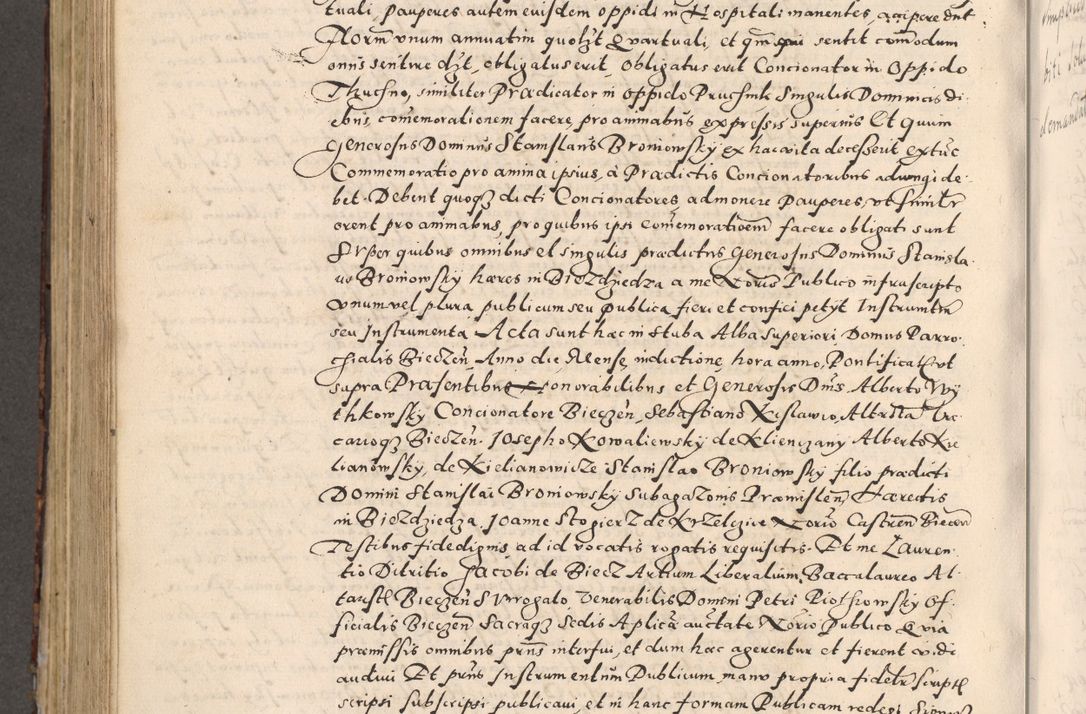 tuali, pauperes autem eiusdem oppidi in Hospitali manentes, accipere dnt
Florm vnum annuatim quolyt Quartuali, et qm qui sentit comodum
onus sentire dyt, obligatus erit, obligatus erit Concionator in Oppido
Thuchno, similiter Prædicator in oppido Pruchnik Singulis Dominicis di,
ebus, comemorationem facere, pro animabus expressis superius Et quum
Generosus Dominus Stanislaus Broniowsky ex hac vita decesserit ex tuc
Commemoratio pro anima ipsius, à Prædictis Concionatoribus adiungi de,
bet. Debent quoq dicti Concionatores admonere Pauperes, vt similr
orent pro animabus, pro quibus ipsi Comemorationem facere obligati sunt
Super quibus omnibus et singulis prædictus Generosus Dominus Stanisla,
us Broniowsky hæres in Biezdziedza a me Norio Publico infrascripto
vnum vel plura publicum seu publica fieri et confici petyt Instrumtm
seu Instrumenta. Acta sunt hæc in stuba Alba superiori Domus Parro,
chialis Bieczen, Anno die, Mense, indictione, hora anno, Pontificat vt
supra Præsentibus honorabilibus et Generosis Dnis Alberto Wy
thkowsky Concionatore Bieczen, Sebastiano Kislawio, Altrsta Vic
carioq Bieczen. Josepho Kowaliewsky de Klienczany Alberto Kie
lianowsky, de Kielianowicze Stanislao Broniowsky filio prædicti
Domini Stanislai Broniowsky Subagazonis Præmislen, Hæredis
in Biezdziedza, Joanne Stogierz de Krzelczice Norio Castren Biecen
Testibus fidedignis, ad id vocatis rogatis requisitis. Et me Lauren
tio Ditritio Jacobi de Biecz Artium Liberalium Baccalaureo Al,
tarist Bieczen Surrogato, Venerabilis Domini Petri Piotrkowsky Of,
ficialis Bieczen Sacraq Sedis Aplica auctate Norio Publico Quia
præmissis omnibus prns interfui, et dum hæc agerentur et fierent vidi
audiui Et prns Instrumentum Publicum manu propria fidelr script
scripsi subscripsi publicaui, et in hanc formam Publicam redegi Signoq